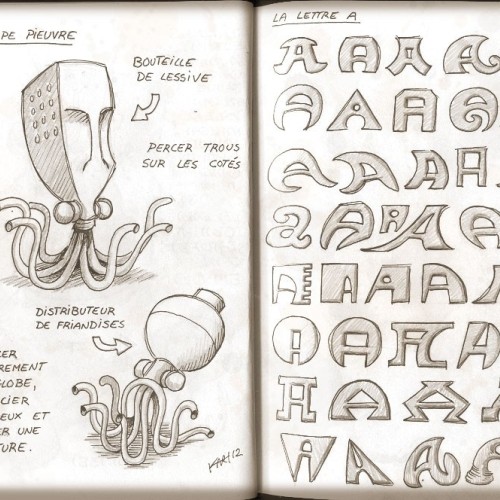 PE PIEUVRE
BOUTEILLE
DE LESSIVE
PERCER TROUS
SUR LES COTÉS
DISTRIBUTEUR
DE FRIANDISES
CER
REMENT
GLOBE,
CIER
EUX ET
ER UNE
TURE.
LA LETTRE A